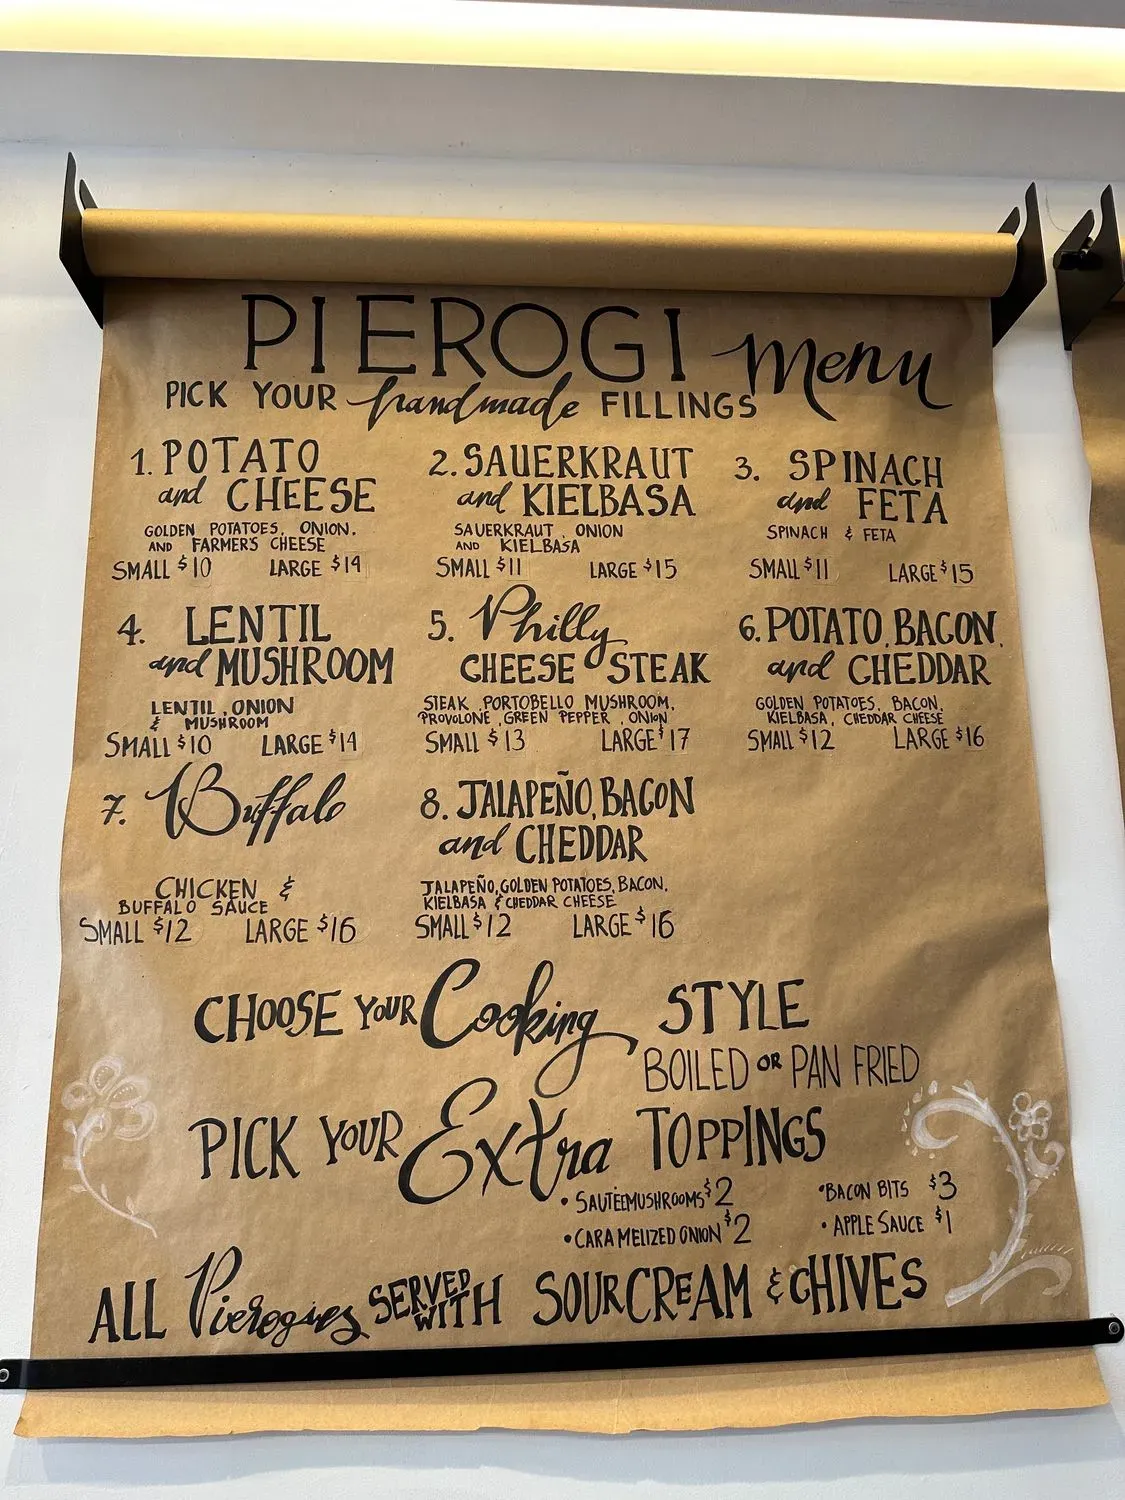 PIEROGI Menu
PICK YOUR handmade FILLINGS
1. POTATO
and CHEESE
GOLDEN POTATOES, ONION,
AND FARMERS CHEESE
SMALL $10 LARGE $14
2. SAUERKRAUT
and KIELBASA
SAUERKRAUT, ONION
AND KIELBASA
SMALL $11 LARGE $15
3. SPINACH
and FETA
SPINACH & FETA
SMALL $11 LARGE $15
4. LENTIL
and MUSHROOM
LENTIL, ONION
& MUSHROOM
SMALL $10 LARGE $14
5. Philly
CHEESE STEAK
STEAK, PORTOBELLO MUSHROOM,
PROVOLONE, GREEN PEPPER, ONION
SMALL $13 LARGE $17
6. POTATO, BACON,
and CHEDDAR
GOLDEN POTATOES, BACON,
KIELBASA, CHEDDAR CHEESE
SMALL $12 LARGE $16
7. Buffalo
CHICKEN &
BUFFALO SAUCE
SMALL $12 LARGE $16
8. JALAPEÑO, BACON
and CHEDDAR
JALAPEÑO, GOLDEN POTATOES, BACON,
KIELBASA & CHEDDAR CHEESE
SMALL $12 LARGE $16
CHOOSE YOUR Cooking STYLE
BOILED OR PAN FRIED
PICK YOUR Extra TOPPINGS
• SAUTÉEMUSHROOMS $2
• CARAMELIZED ONION $2
• BACON BITS $3
• APPLE SAUCE $1
ALL Pierogies SERVED WITH SOUR CREAM & CHIVES